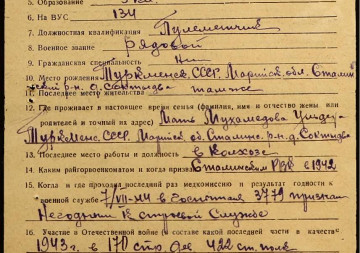 5. Образование
6. На ВУС 134
7. Должностная квалификация Пулеметчик
8. Военное звание рядовой
9. Гражданская специальность нит
10. Место рождения Туркменск. СССР, Марийск. обл. Сталин
ский р-н. а. Сактыда
11. Последнее место жительства также
12. Где проживает в настоящее время семья (фамилия, имя и отчество жены или
родителей и точный их адрес) Мать Мухамедова
Туркменс. СССР, Марийс. об. Сталинс. р-н. д. Сактыда
13. Последнее место работы и должность в колхозе
14. Каким райгорвоенкоматом и когда призван Сталинским РВК в 1942
15. Когда и где проходил последний раз медкомиссию и результат годности к
военной службе 7/VII-44 в госпитале 3779 признан
Негодным к строевой службе
16. Участие в Отечественной войне в составе какой последней части и в качестве
1943 г. в 170 стр. див 422 ст. полк